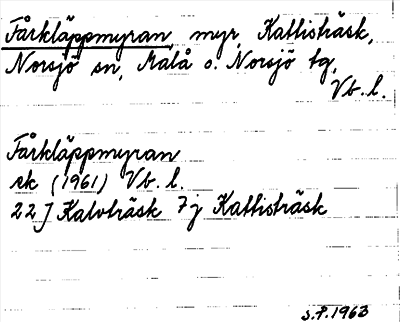 Fårkläppmyran, myr, Kattisträsk,
Norsjö sn, Malå o. Norsjö tg,
Vb. l.
Fårkläppmyran
ek (1961) Vb. l.
22J Kalvträsk 7j Kattisträsk
S.P. 1963